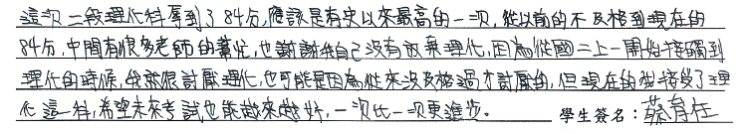 這次二段理化科考到了84分,應該是有史以來最高的一次,從以前的不及格到現在的
84分,中間有很多老師的幫忙,也謝謝我自己沒有放棄理化,因為從國二上一開始接觸到
理化的時候,我就很討厭理化,也可能是因為從來沒及格過才討厭的,但現在的我接受了理
化這一科,希望未來考試也能越來越好,一次比一次更進步。 學生簽名:蔡育在